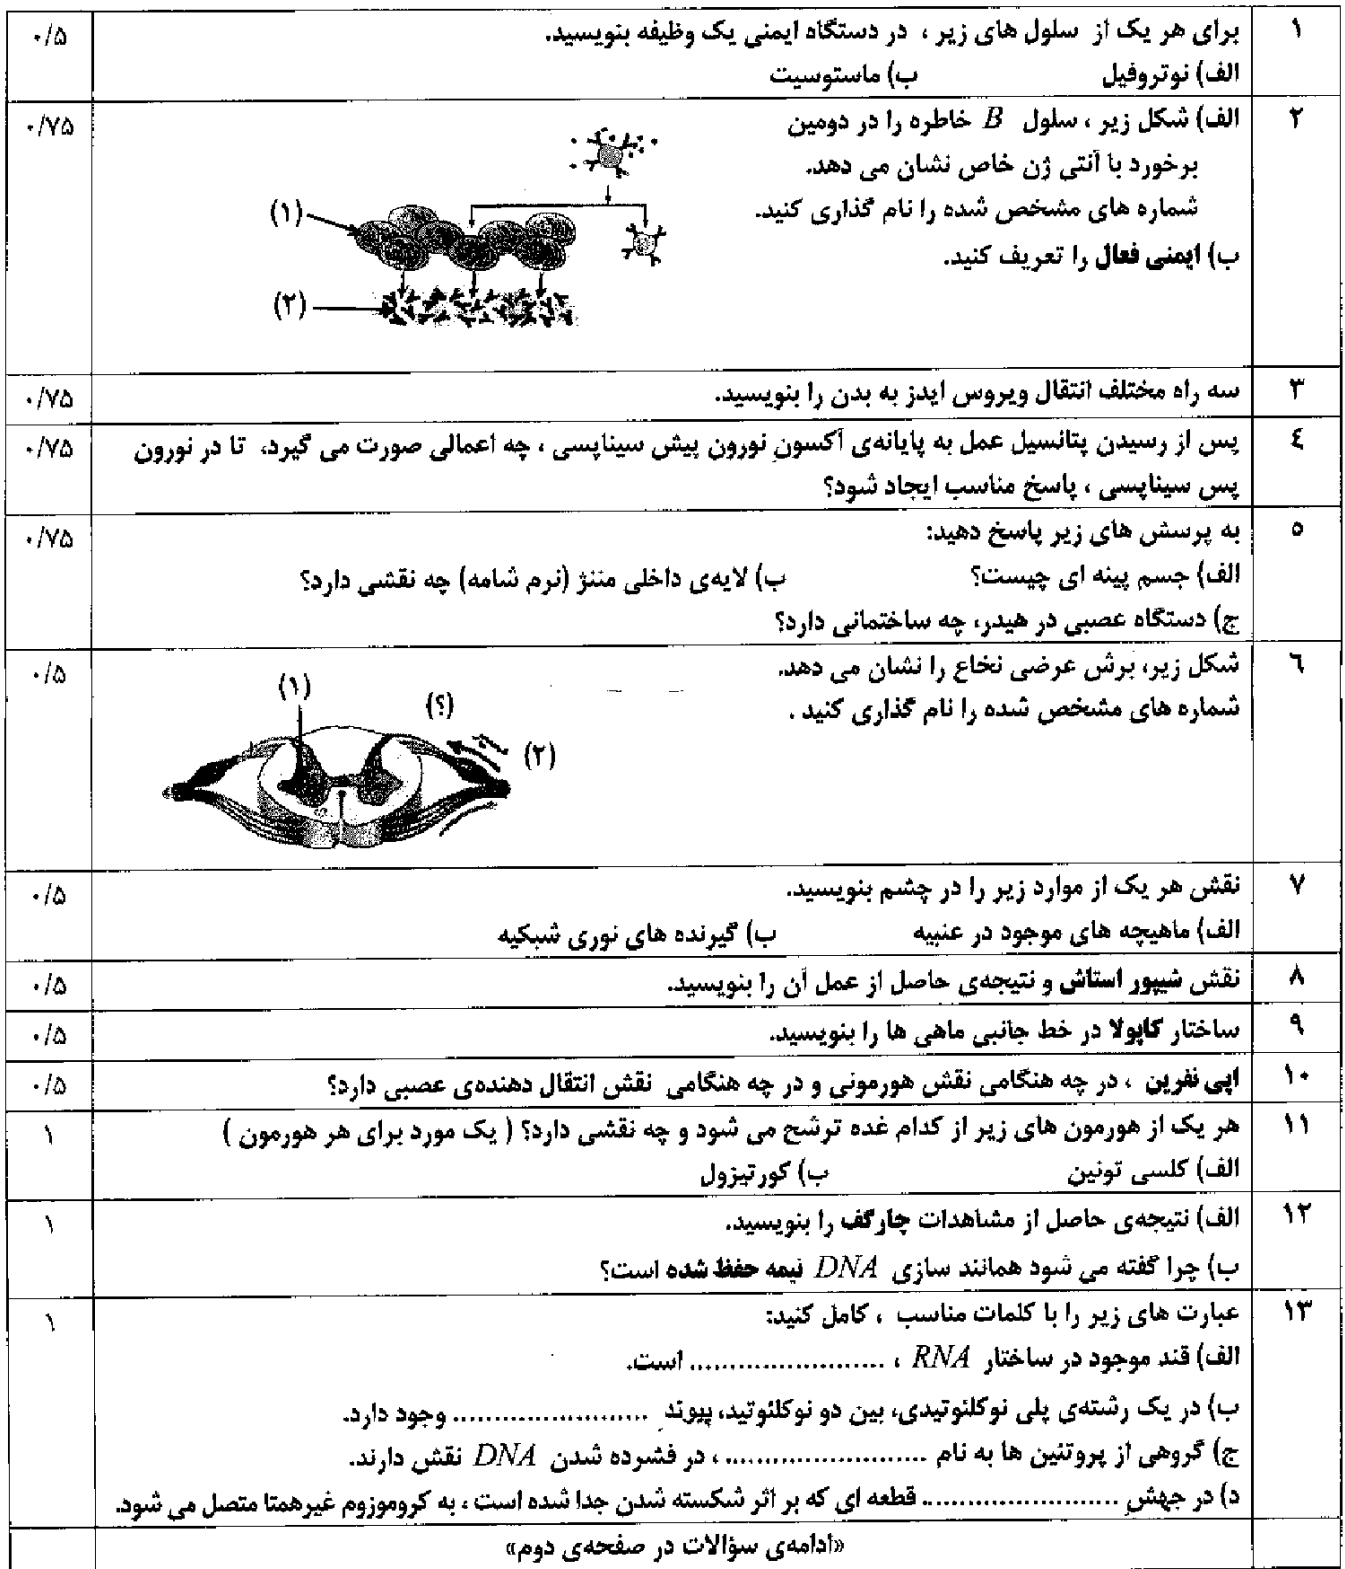 ۱ برای هر یک از سلول های زیر ، در دستگاه ایمنی یک وظیفه بنویسید. ۰/۵
الف) نوتروفیل ب) ماستوسیت
۲ الف) شکل زیر ، سلول B خاطره را در دومین ۰/۷۵
برخورد با آنتی ژن خاص نشان می دهد.
شماره های مشخص شده را نام گذاری کنید.
(۱)
ب) ایمنی فعال را تعریف کنید.
(۲)
۳ سه راه مختلف انتقال ویروس ایدز به بدن را بنویسید. ۰/۷۵
٤ پس از رسیدن پتانسیل عمل به پایانه‌ی آکسون نورون پیش سیناپسی ، چه اعمالی صورت می گیرد، تا در نورون ۰/۷۵
پس سیناپسی ، پاسخ مناسب ایجاد شود؟
٥ به پرسش های زیر پاسخ دهید: ۰/۷۵
الف) جسم پینه ای چیست؟ ب) لایه‌ی داخلی مننژ (نرم شامه) چه نقشی دارد؟
ج) دستگاه عصبی در هیدر، چه ساختمانی دارد؟
٦ شکل زیر، برش عرضی نخاع را نشان می دهد. ۰/۵
شماره های مشخص شده را نام گذاری کنید .
(۱)
(؟)
(۲)
۷ نقش هر یک از موارد زیر را در چشم بنویسید. ۰/۵
الف) ماهیچه های موجود در عنبیه ب) گیرنده های نوری شبکیه
۸ نقش شیپور استاش و نتیجه‌ی حاصل از عمل آن را بنویسید. ۰/۵
۹ ساختار کاپولا در خط جانبی ماهی ها را بنویسید. ۰/۵
۱۰ اپی نفرین ، در چه هنگامی نقش هورمونی و در چه هنگامی نقش انتقال دهنده‌ی عصبی دارد؟ ۰/۵
۱۱ هر یک از هورمون های زیر از کدام غده ترشح می شود و چه نقشی دارد؟ ( یک مورد برای هر هورمون ) ۱
الف) کلسی تونین ب) کورتیزول
۱۲ الف) نتیجه‌ی حاصل از مشاهدات چارگف را بنویسید. ۱
ب) چرا گفته می شود همانند سازی DNA نیمه حفظ شده است؟
۱۳ عبارت های زیر را با کلمات مناسب ، کامل کنید: ۱
الف) قند موجود در ساختار RNA ، ........................ است.
ب) در یک رشته‌ی پلی نوکلئوتیدی، بین دو نوکلئوتید، پیوند ........................ وجود دارد.
ج) گروهی از پروتئین ها به نام ........................ ، در فشرده شدن DNA نقش دارند.
د) در جهش ........................ قطعه ای که بر اثر شکسته شدن جدا شده است ، به کروموزوم غیرهمتا متصل می شود.
«ادامه‌ی سؤالات در صفحه‌ی دوم»